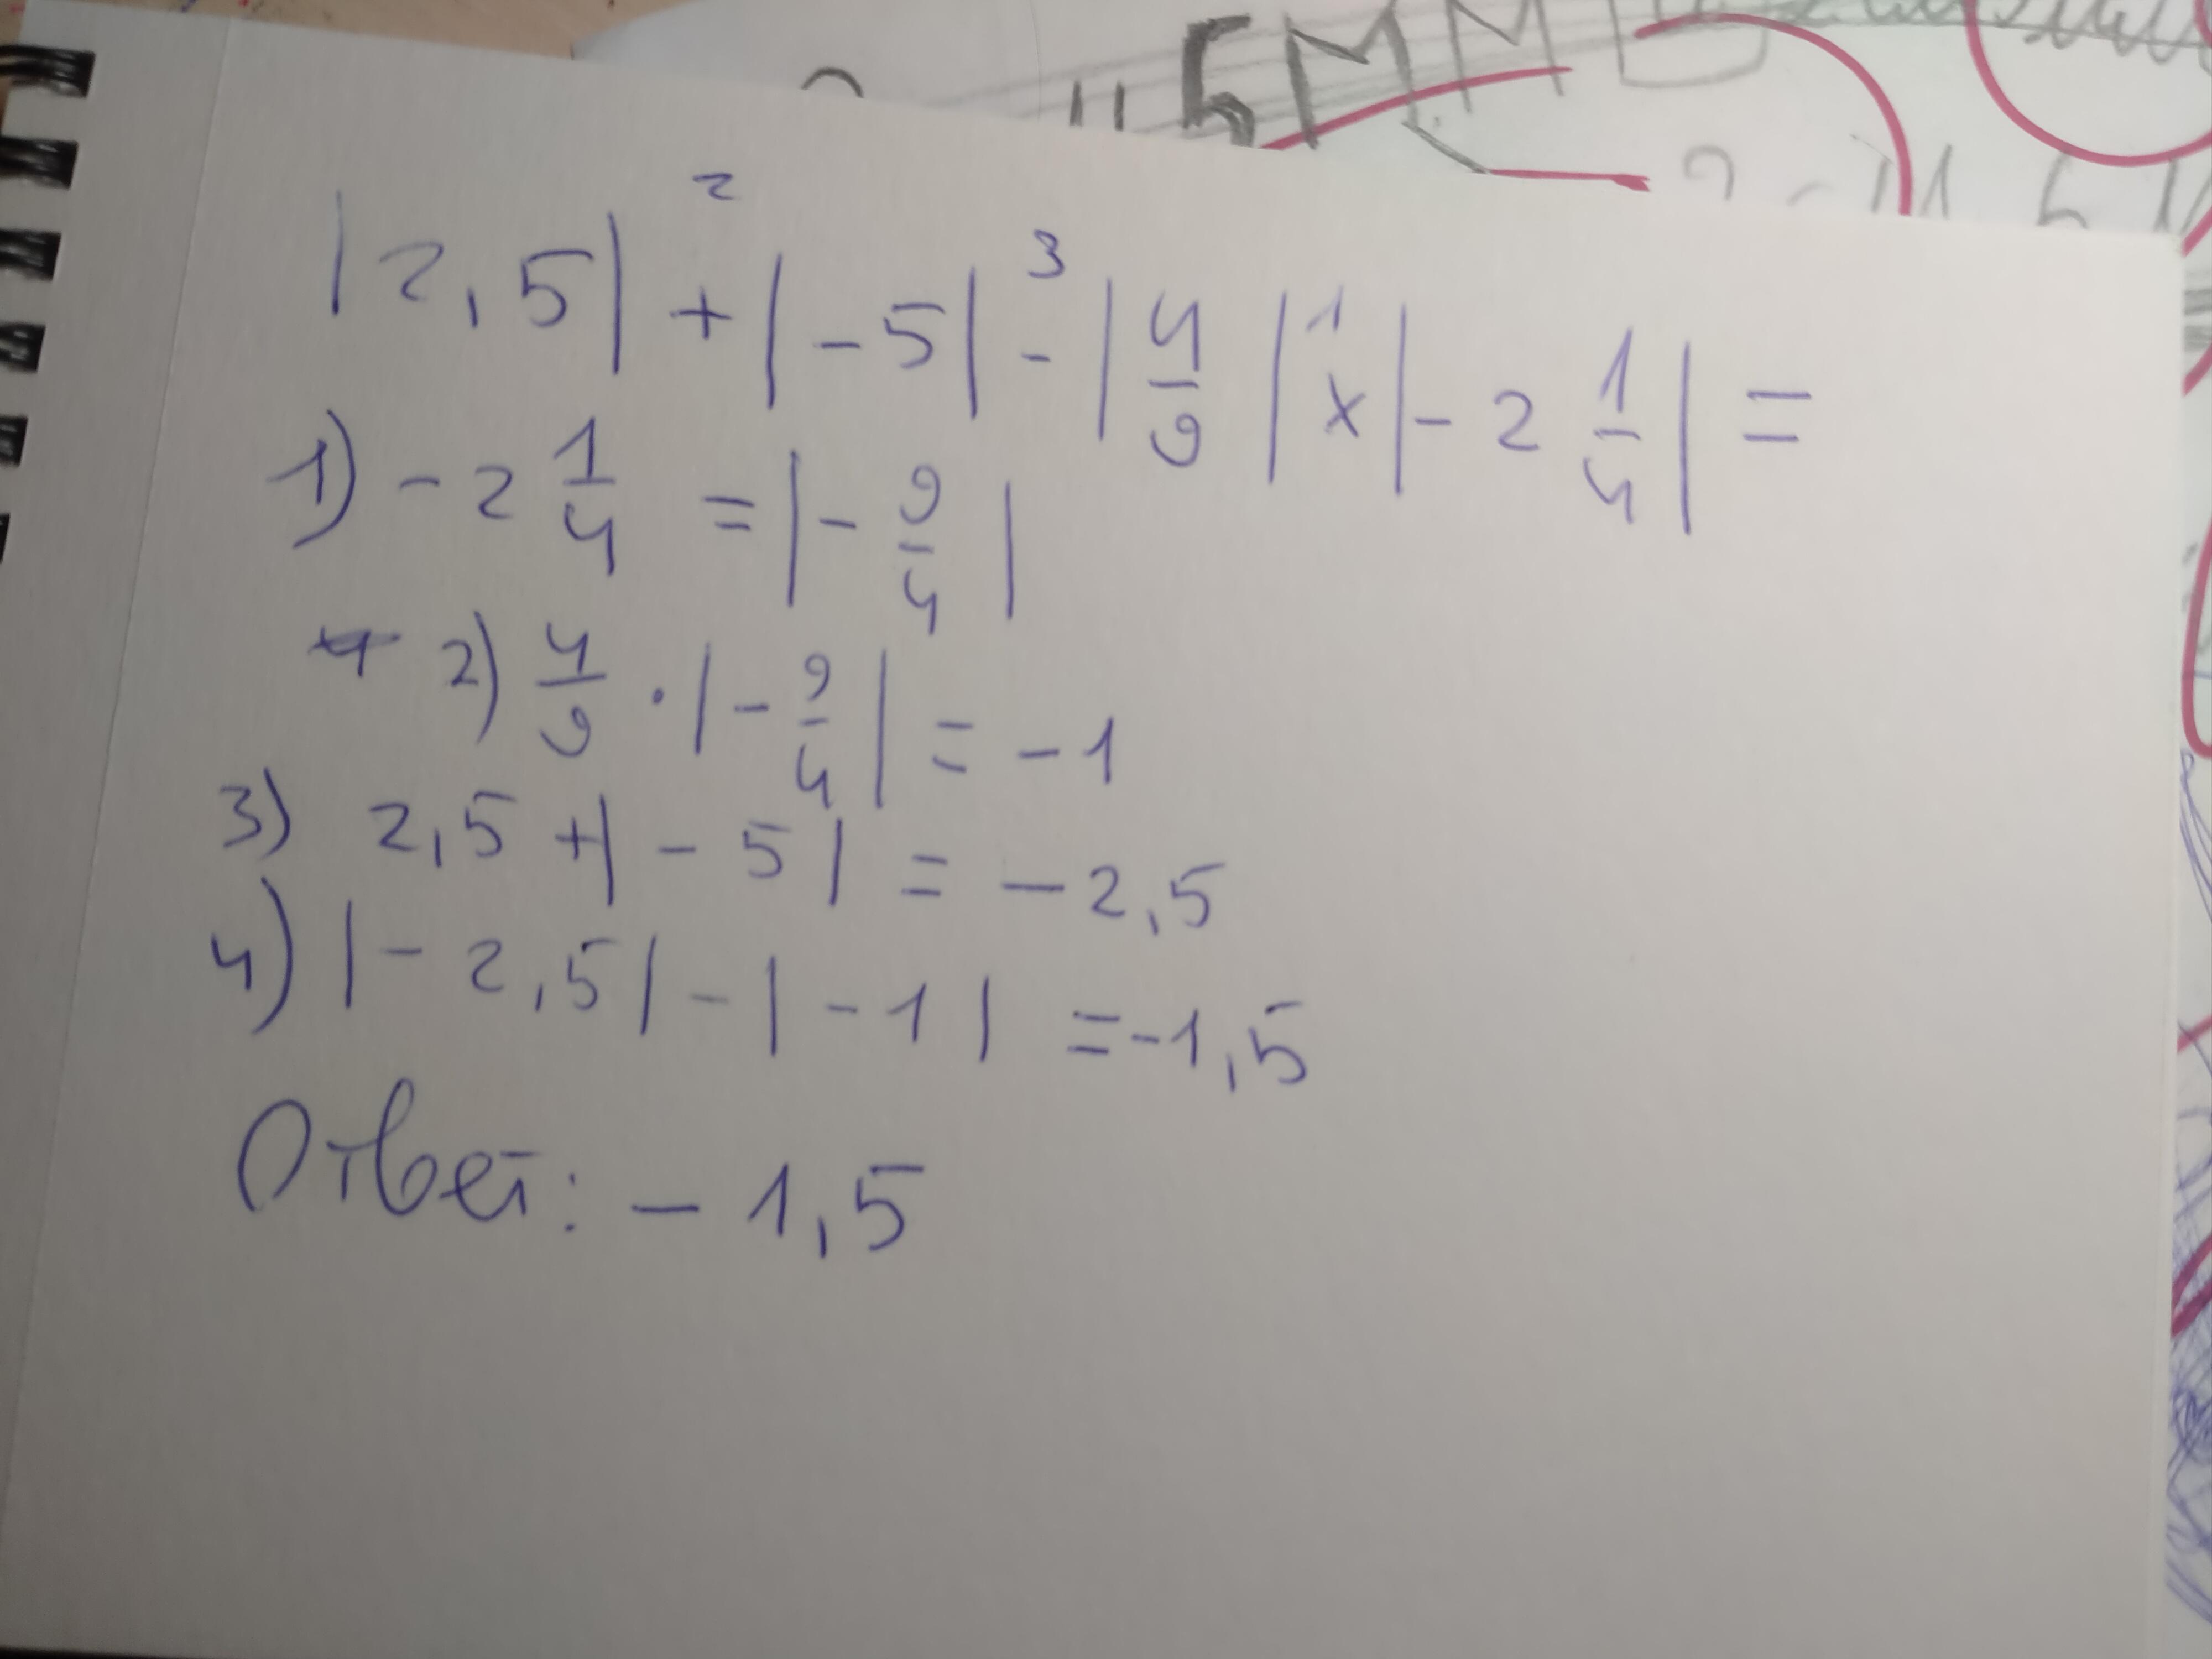 "БММ
|2,5| +² |-5| -³ |4/9| ×¹ |-2 1/4| =
1) -2 1/4 = |-9/4|
2) 4/9 · |-9/4| = -1
3) 2,5 + |-5| = -2,5
4) |-2,5| - |-1| = -1,5
Ответ: -1,5